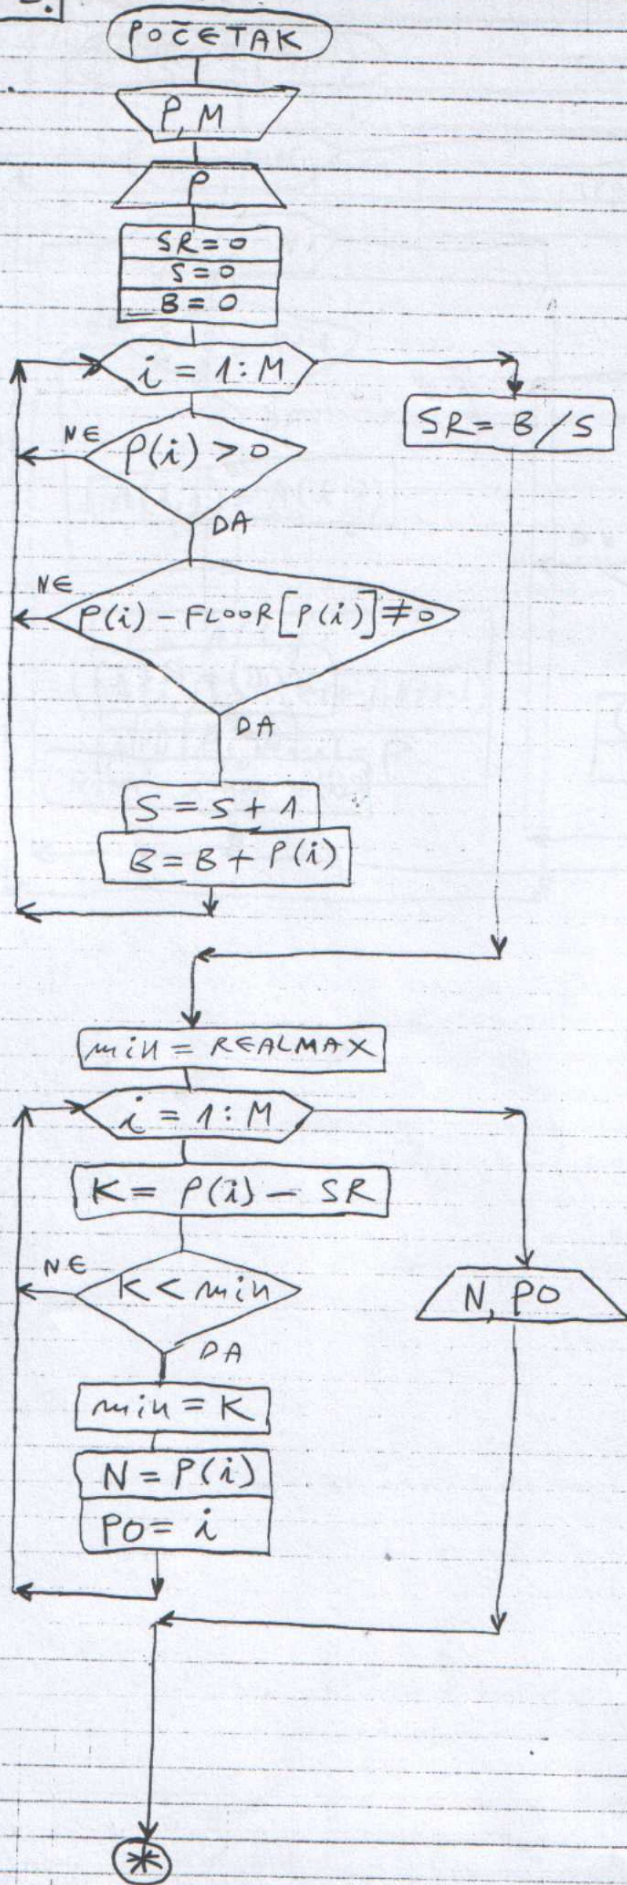 POČETAK
P, M
P
SR = 0
S = 0
B = 0
i = 1 : M
SR = B / S
NE
P(i) > 0
DA
NE
P(i) - FLOOR[P(i)] ≠ 0
DA
S = S + 1
B = B + P(i)
min = REALMAX
i = 1 : M
K = P(i) - SR
NE
K < min
N, PO
DA
min = K
N = P(i)
PO = i
*